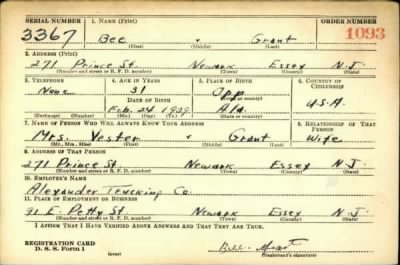 SERIAL NUMBER 1. NAME (Print) ORDER NUMBER
3367 Bee Grant 1093
(First) (Middle) (Last)
2. ADDRESS (Print)
271 Prince St. Newark Essex N.J.
(Number and street or R. F. D. number) (Town) (County) (State)
3. TELEPHONE 4. AGE IN YEARS 5. PLACE OF BIRTH 6. COUNTRY OF CITIZENSHIP
None 31 Opp
DATE OF BIRTH (Town or county)
Feb. 24 1909 Ala. U.S.A.
(Exchange) (Number) (Mo.) (Day) (Yr.) (State or country)
7. NAME OF PERSON WHO WILL ALWAYS KNOW YOUR ADDRESS 8. RELATIONSHIP OF THAT PERSON
Mrs. Vester Grant Wife
(Mr., Mrs., Miss) (First) (Middle) (Last)
9. ADDRESS OF THAT PERSON
271 Prince St. Newark Essex N.J.
(Number and street or R. F. D. number) (Town) (County) (State)
10. EMPLOYER'S NAME
Alexander Trucking Co.
11. PLACE OF EMPLOYMENT OR BUSINESS
91 E. Petty St. Newark Essex N.J.
(Number and street or R. F. D. number) (Town) (County) (State)
I AFFIRM THAT I HAVE VERIFIED ABOVE ANSWERS AND THAT THEY ARE TRUE.
REGISTRATION CARD
D. S. S. Form 1 (over) (Registrant's signature)